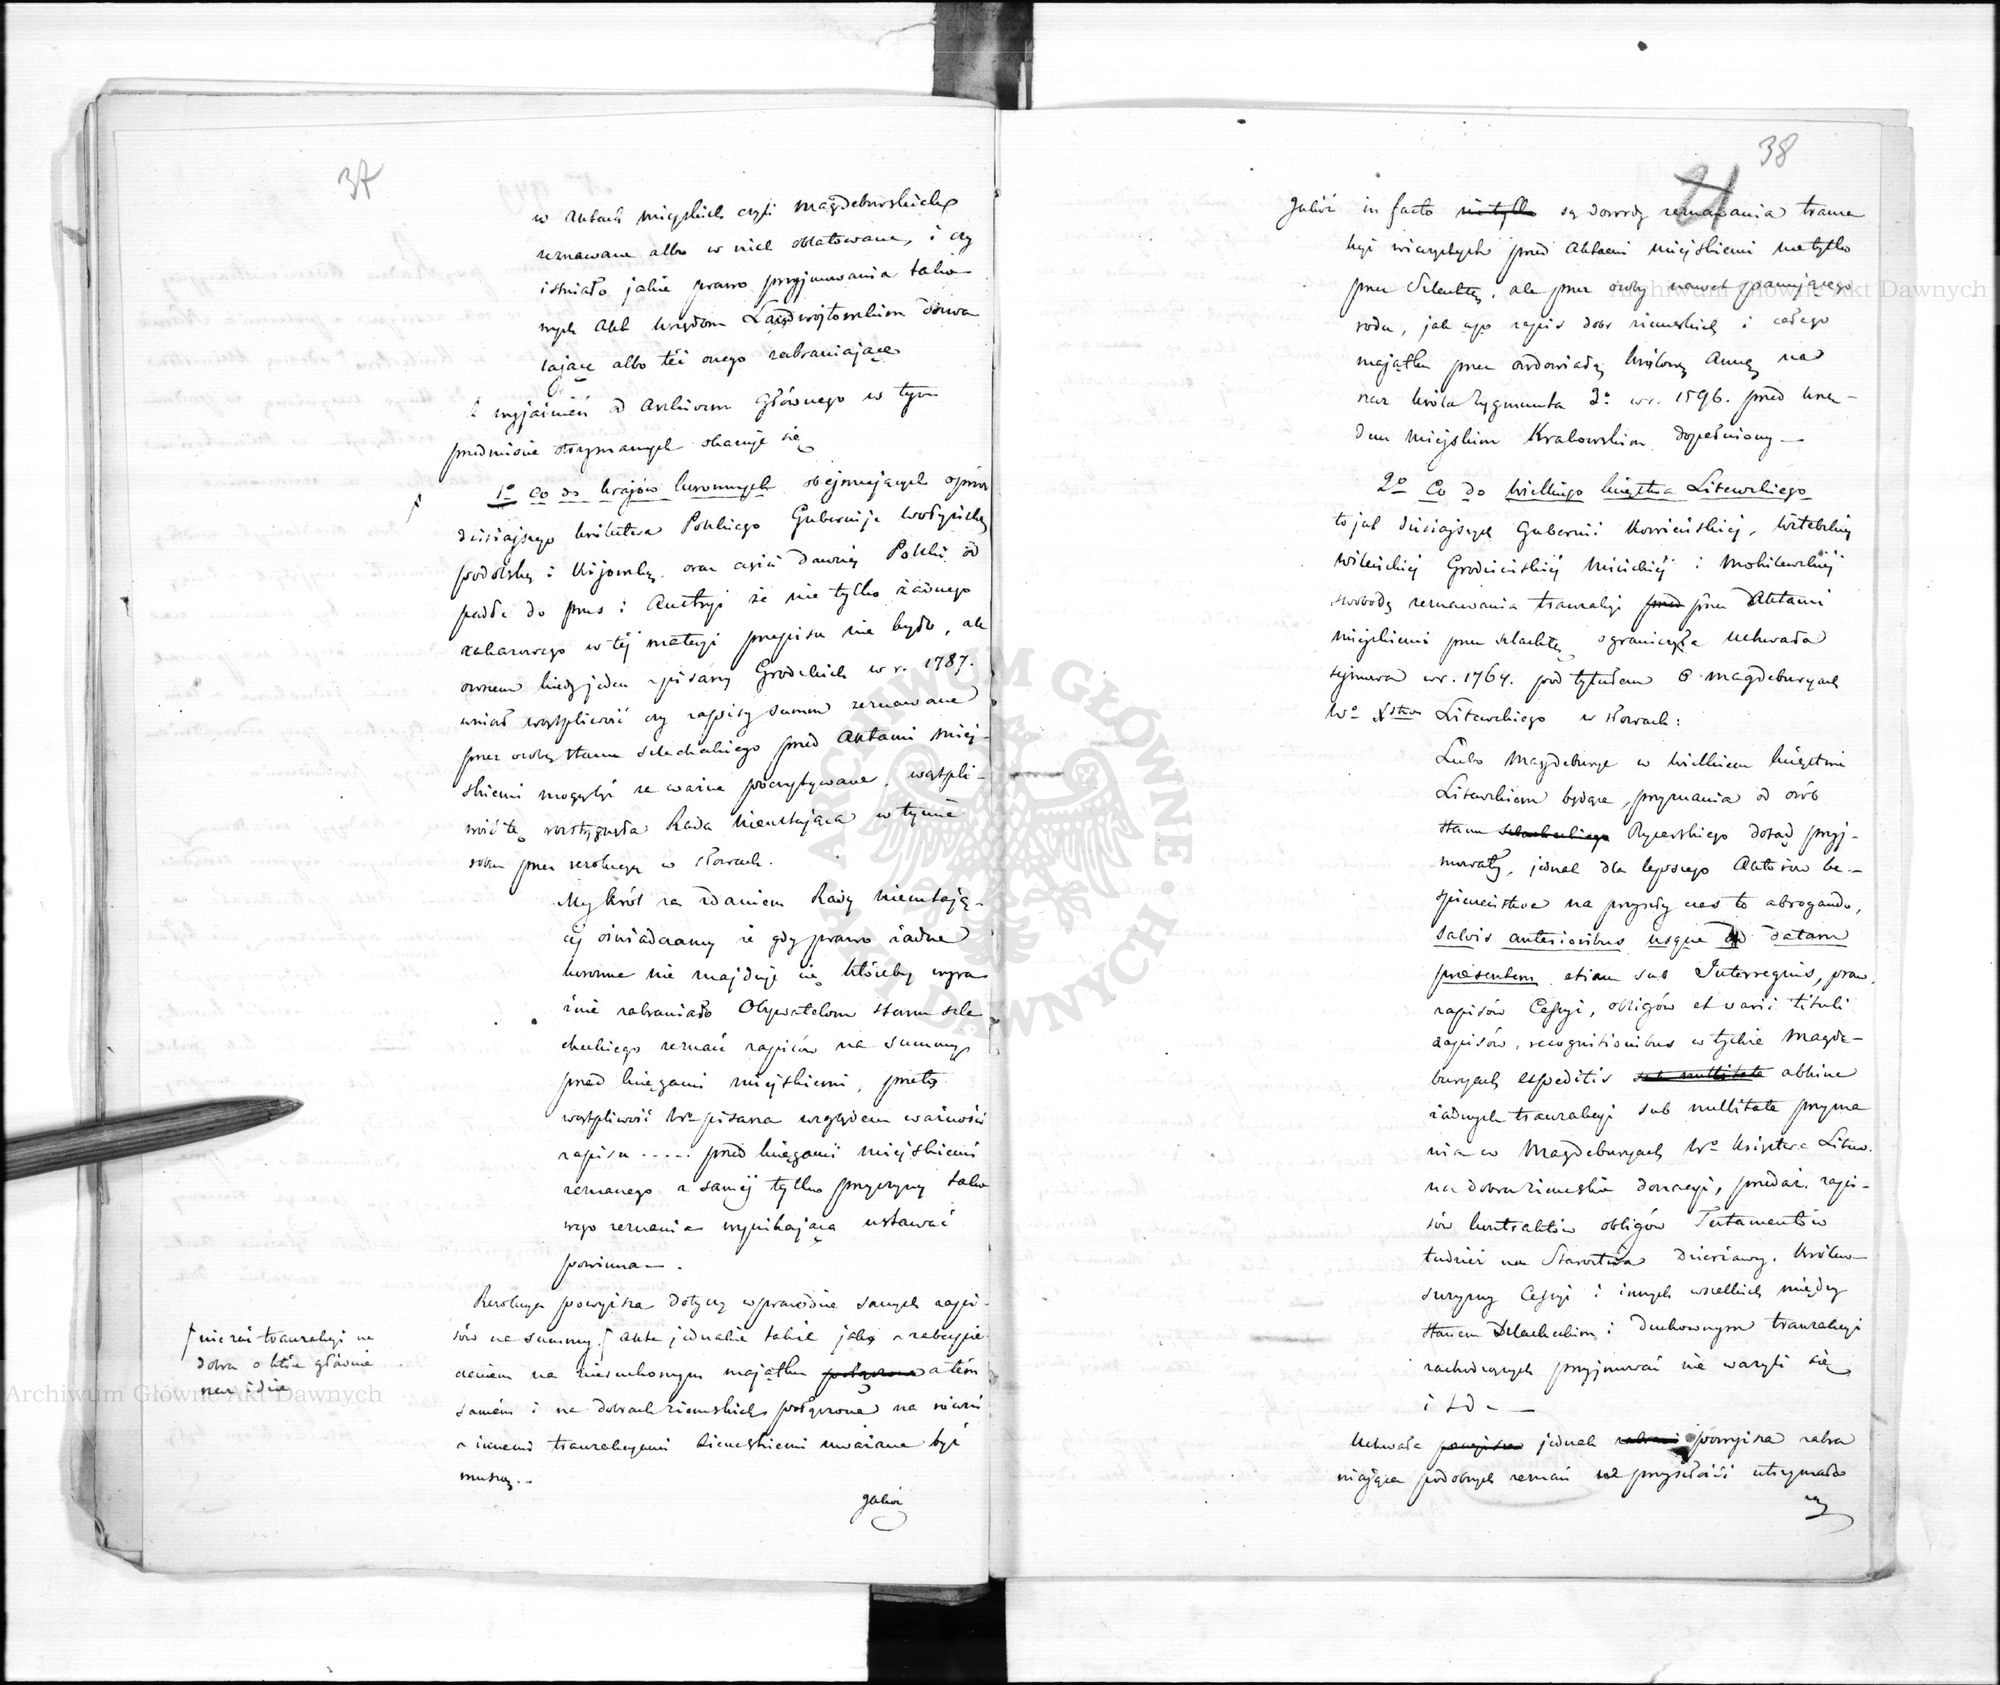 37
w Aktach miejskich czyli magdeburskich
zeznawane albo w nich oblatowane, i czy
istniało jakie prawo przyjmowania tako-
wych Akt Urzędom Landwójtowskim dozwa
lające albo też onego zabraniające
Z wyjaśnień od Archiwum Głównego w tym
przedmiocie otrzymanych okazuje się
1o co do krajów koronnych obejmujących oprócz
dzisiajszego królestwa Polskiego Gubernije Wołyńską
podolską i Kijowską oraz części dawnej Polski od
padłe do Prus i Austryi że nie tylko żadnego
zakazowego w tej materyi przepisu nie było, ale
owszem kiedy jeden z pisarzy Grodzkich w r. 1787.
wniósł wątpliwość czy zapisy summ zeznawane
przez osoby stanu szlacheckiego przed Aktami miej-
skiemi mogą być za ważne poczytywane, wątpli-
wość tę rozstrzygnęła Rada Nieustająca w tymże
roku przez rezolucyą w słowach.
My Król za zdaniem Rady Nieustają-
cej oświadczamy że gdy prawo żadne
koronne nie znajduje się któreby wyra
źnie zabraniało Obywatelom stanu szla
checkiego zeznać zapisów na summy
przed księgami miejskiemi, przeto
wątpliwość Wo pisarza względem ważności
zapisu ..... przed księgami miejskiemi
zeznanego z samej tylko przyczyny tako
wego zeznania wynikająca ustawać
powinna —.
Rezolucya powyższa dotyczy wprawdzie samych zapi-
sów na summy, akta jednakże takie jako z zabezpie
czeniem na nieruchomym majątku połączone a tém
samém i na dobrach ziemskich połączone na równi
z innemi tranzakcyami ziemskiemi uważane być
muszą.
/ nie zaś tranzakcyi na
dobra o które głównie
nam idzie
jakoż
38
21
Jakoż in facto nie tylko są dowody zeznawania tranza
kcyi wieczystych przed Aktami miejskiemi nie tylko
przez Szlachtę, ale przez osoby nawet panującego
rodu, jak np. zapis dóbr ziemskich i całego
majątku przez owdowiałą królową Annę na
rzecz króla Zygmunta 3o w r. 1596. przed Urzę-
dem Miejskim Krakowskim dopełniony —
2o Co do Wielkiego księztwa Litewskiego
to jest dzisiajszych Gubernii Kowieńskiej, Witebskiej
Wileńskiej Grodzieńskiej Mińskiej i Mohilewskiej
swobodę zeznawania tranzakcyi przed Aktami
miejskiemi przez szlachtę ograniczyła Uchwała
sejmowa w r. 1764. pod tytułem O magdeburyach
Wo Xstwa Litewskiego w słowach:
Lubo Magdeburye w wielkiem księstwie
Litewskiem będące, przyznania od osób
stanu szlacheckiego Rycerskiego dotąd przyj-
mowały, jednak dla lepszego Aktorów be-
spieczeństwa na przyszły czas to abrogando,
salvis anterioribus usque ad datam
praesentem etiam sub Interregnis, praw,
zapisów Cessyi, obligów et varii tituli
zapisów, recognitionibus w tychże Magde-
buryach expeditis sub nullitate abhinc
żadnych tranzakcyi sub nullitate przyzna
nia w Magdeburyach Wo Księztwa Litew.
na dobra ziemskie donacyi, przedaż, zapi-
sów kontraktów obligów Testamentów
tudzież na Starostwa Dzierżawy, Królew-
szczyzny Cessyi i innych wszelkich między
stanem Szlacheckim i Duchownym tranzakcyi
zachodzących przyjmować nie ważyli się
i t d — —
Uchwała powyższa jednak powyższa zabra
niająca podobnych zeznań na przyszłość utrzymała
Archiwum Główne Akt Dawnych
Archiwum Główne Akt Dawnych
ARCHIWUM GŁÓWNE AKT DAWNYCH